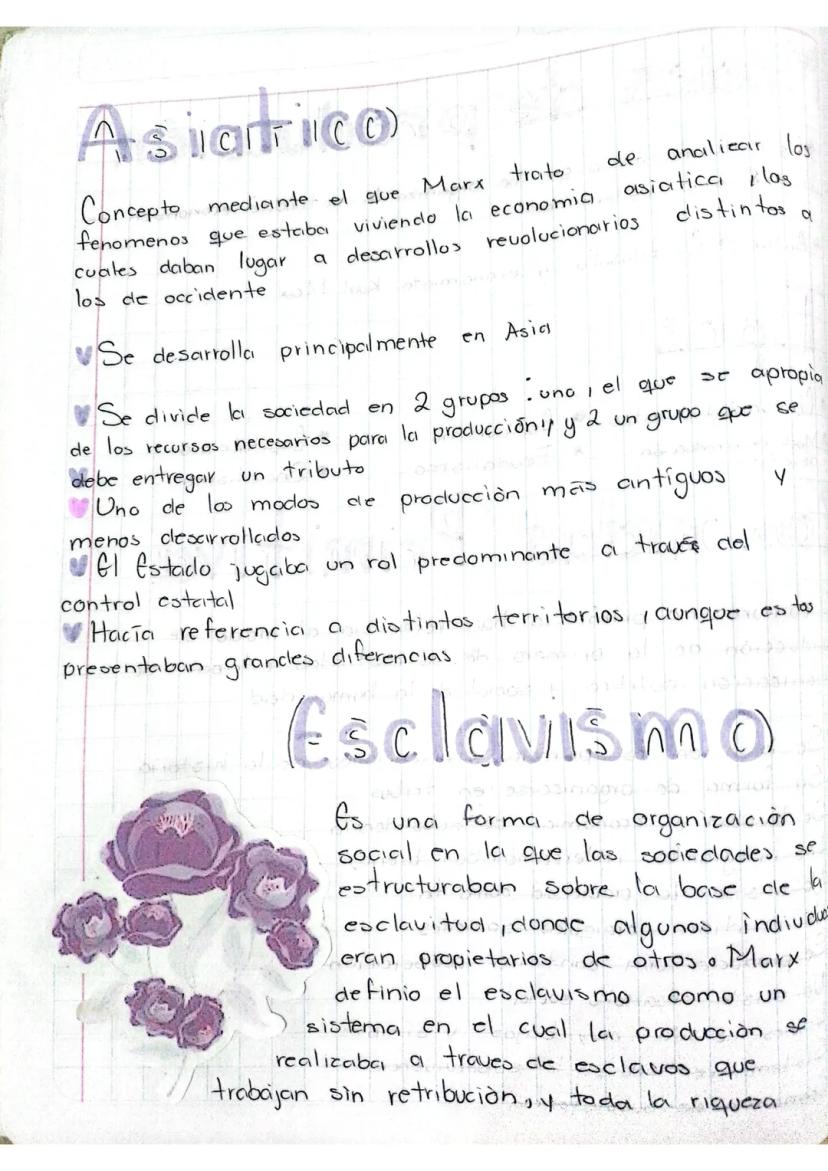 Asiatico
Concepto mediante el que Marx trato de analizar los
fenomenos que estaba viviendo la economia asiatica, los
cuales daban lugar a desarrollos revolucionarios distintos a
los de occidente
Se desarrolla principalmente en Asia
Se divide la sociedad en 2 grupos: uno, el que se apropia
de los recursos necesarios para la producción, y 2 un grupo que se
debe entregar un tributo
Uno de los modos de producción más antiguos y
menos desarrollados
El Estado jugaba un rol predominante a través del
control estatal
Hacía referencia a distintos territorios, aunque estos
presentaban grandes diferencias
Esclavismo
Es una forma de organización
social en la que las sociedades se
estructuraban sobre la base de la
esclavitud, donde algunos individuos
eran propietarios de otros. Marx
definio el esclavismo como un
sistema en el cual la producción se
realizaba a traves de esclavos que
trabajan sin retribución, y toda la riqueza